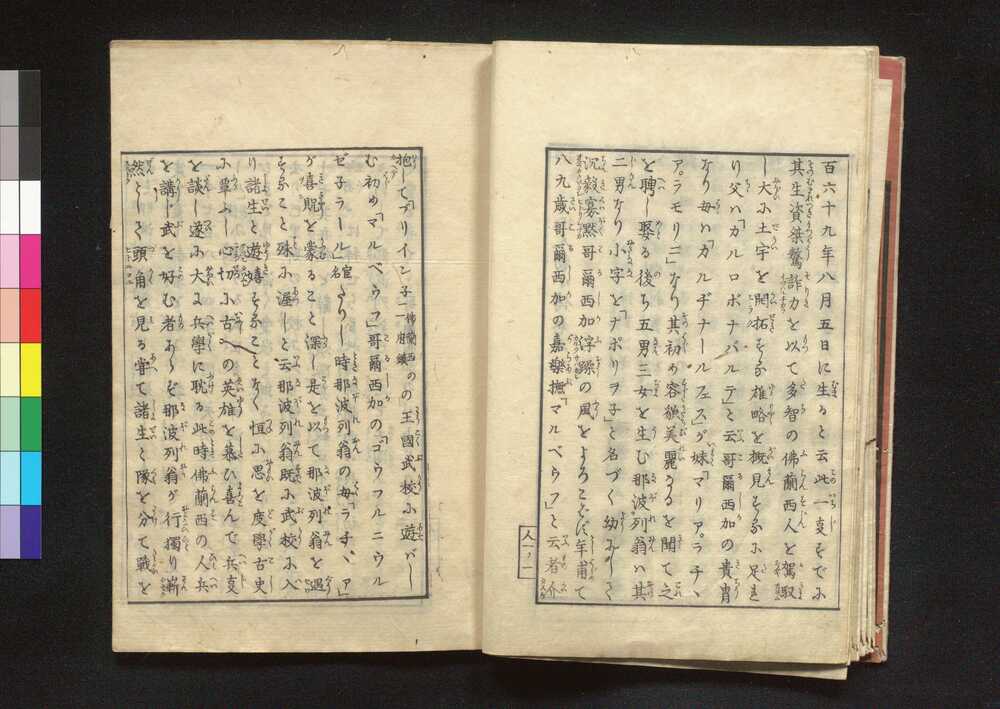 百六十九年八月五日に生ると云此一支すでに
其生資桀驁詐力を以て多智の佛蘭西人を駕馭
し大に土宇を開拓する雄略を概見するに足れ
り父ハ「カルロボナパルテ」と云哥爾西加の貴冑
なり母ハ「カルヂナールフエス」が妹「マリア。ラチヽ
ア。ラモリニ」なり其初め容皃美麗なるを聞て之
を聘し娶る後ち五男三女を生む那波列翁ハ其
二男なり小字を「ナポリヲ子」と名づく幼にして
沉毅寡黙哥爾西加浮躁の風をよろこばず年甫て
八九歳哥爾西加の嘉樂撫「マルベウフ」と云者介
抱して「ブリイン子」佛蘭西の一府鎮の王國武校に遊バし
む初め「マルベウフ」哥爾西加の「ゴウフルニウル
ゼ子ラール」官名たりし時那波列翁の母「ラチヽア」
が喜貺を蒙ること深し是を以て那波列翁を遇
すること殊に渥しと云那波列翁既に武校に入
り諸生と遊嬉することなく恒に思を度學古史
に覃ふし心切に古への英雄を慕ひ喜んで兵支
を談し遂に大に兵學に耽る此時佛蘭西の人兵
を講し武を好む者あらず那波列翁が行獨り嶄
然として頭角を見る甞て諸生と隊を分て戦を